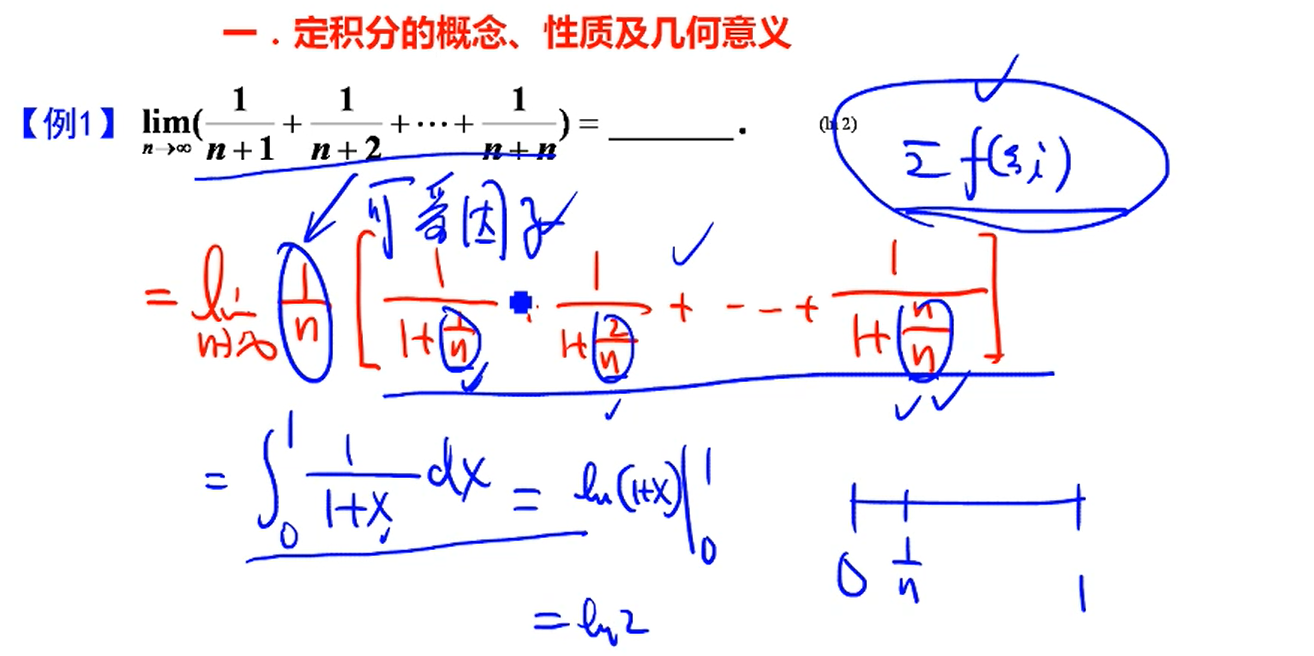 一．定积分的概念、性质及几何意义
【例1】 lim n→∞ ( 1/(n+1) + 1/(n+2) + ⋯ + 1/(n+n) ) = ______. (ln 2)
Σ f(ξi)
可爱因子
= lim n→∞ 1/n [ 1/(1+1/n) + 1/(1+2/n) + --- + 1/(1+n/n) ]
= ∫₀¹ 1/(1+x) dx = ln(1+x) |₀¹
= ln2
0 1/n 1